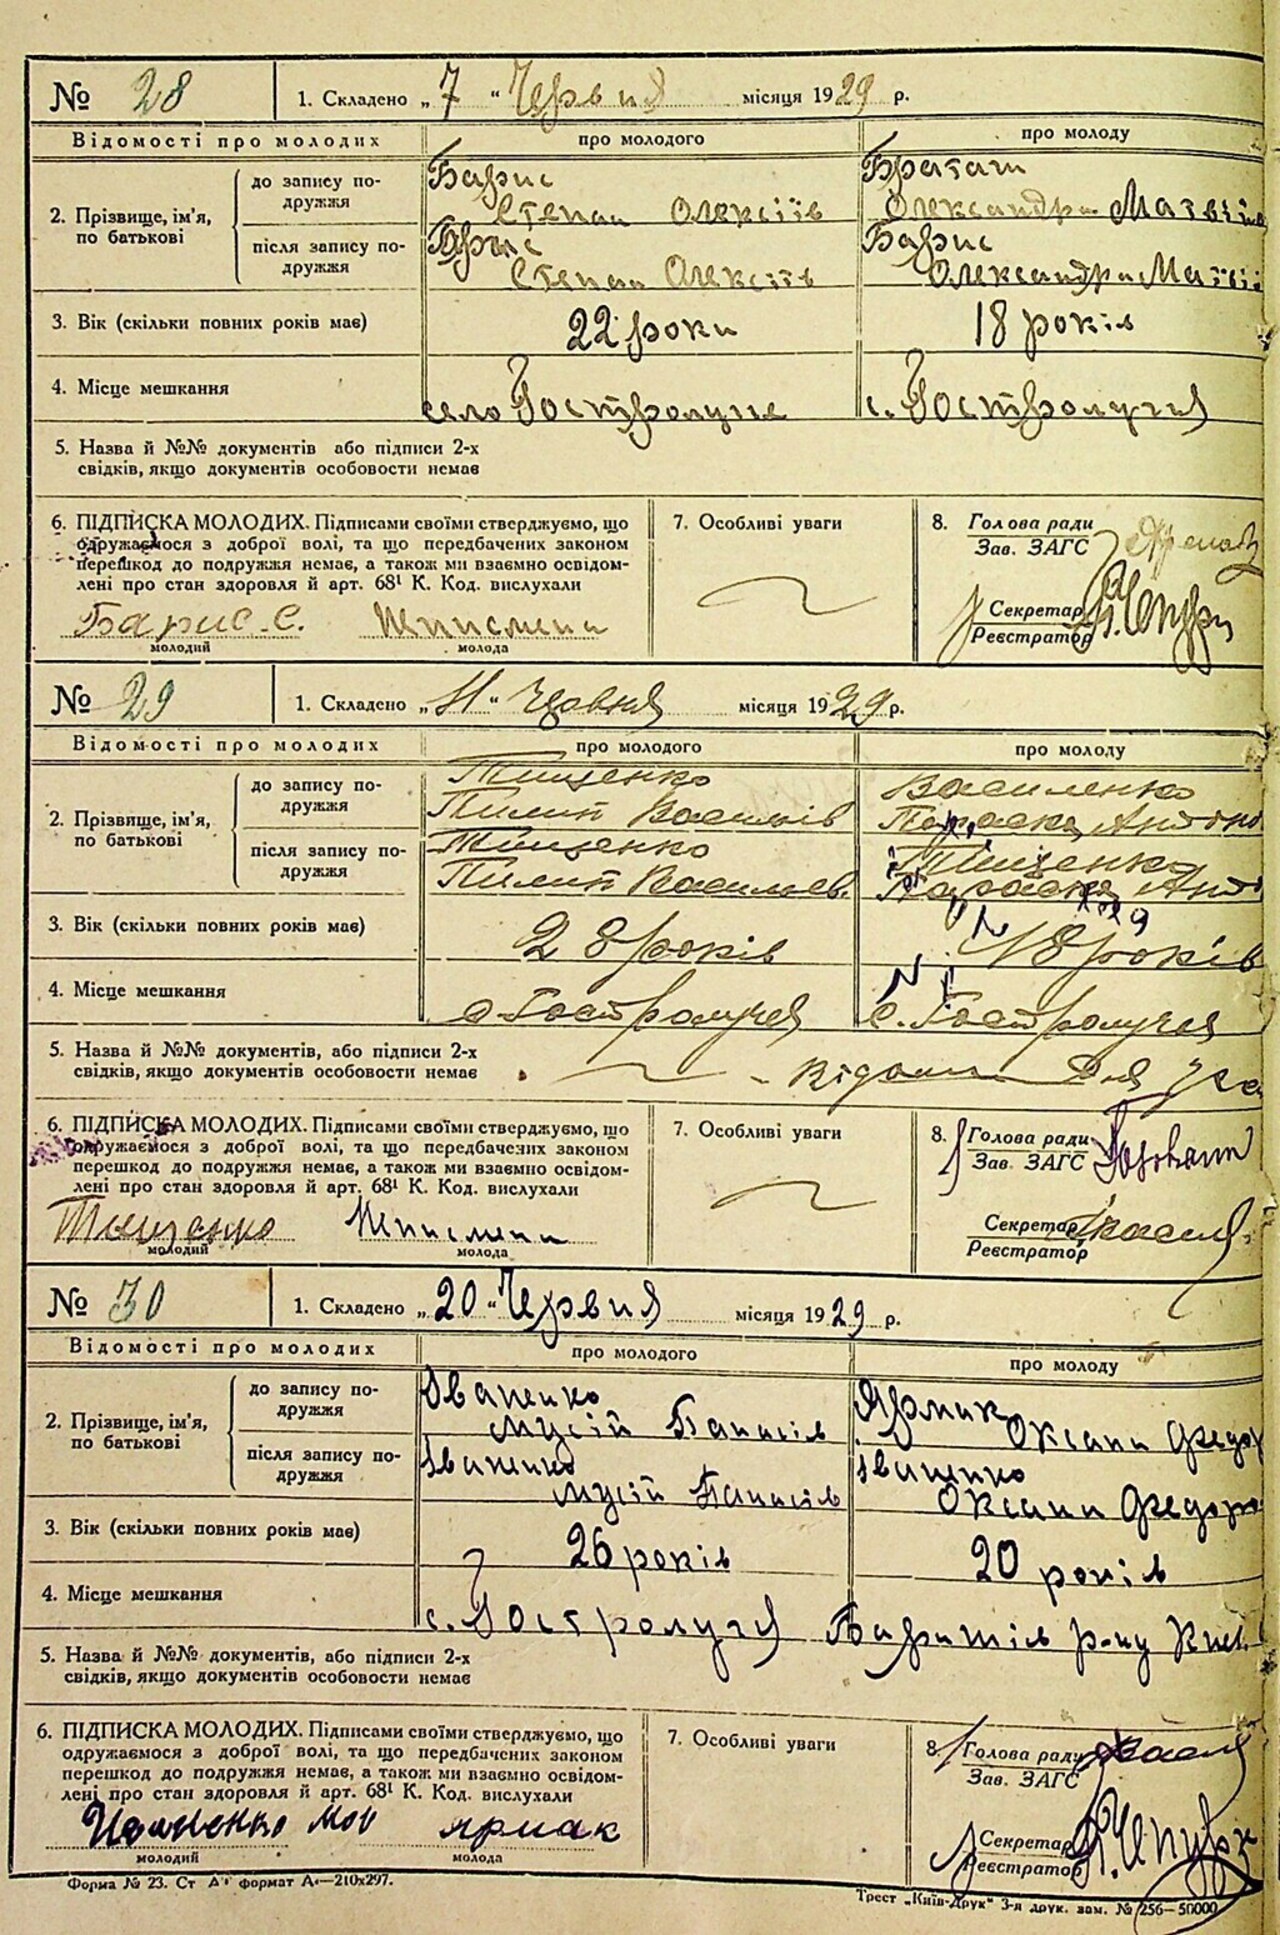 № 28 1. Складено „7“ Червня місяця 1929 р.
Відомості про молодих про молодого про молоду
2. Прізвище, ім'я, по батькові
до запису подружжя
Барис
Степан Олексіїв
Браташ
Олександра Матвіїв
після запису подружжя
Барис
Степан Олексіїв
Барис
Олександра Матвії
3. Вік (скільки повних років має) 22 роки 18 років
4. Місце мешкання село Гостролуччє с. Гостролуччя
5. Назва й №№ документів або підписи 2-х
свідків, якщо документів особовости немає
6. ПІДПИСКА МОЛОДИХ. Підписами своїми стверджуємо, що
одружаємося з доброї волі, та що передбачених законом
перешкод до подружжя немає, а також ми взаємно освідом-
лені про стан здоровля й арт. 68¹ К. Код. вислухали
Барис. С. Неписмена
молодий молода
7. Особливі уваги
8. Голова ради
Зав. ЗАГС
Секретар
Реєстратор
№ 29 1. Складено „11“ Червня місяця 1929 р.
Відомості про молодих про молодого про молоду
2. Прізвище, ім'я, по батькові
до запису подружжя
Тищенко
Пилип Васильів
Василенко
Параска Антоно
після запису подружжя
Тищенко
Пилип Васильев.
Тищенко
Параска Анто
3. Вік (скільки повних років має) 28 років 18 років
4. Місце мешкання с. Гостролуччя с. Гостролуччя
5. Назва й №№ документів, або підписи 2-х
свідків, якщо документів особовости немає
6. ПІДПИСКА МОЛОДИХ. Підписами своїми стверджуємо, що
одружаємося з доброї волі, та що передбачених законом
перешкод до подружжя немає, а також ми взаємно освідом-
лені про стан здоровля й арт. 68¹ К. Код. вислухали
Тищенко Неписмена
молодий молода
7. Особливі уваги
8. Голова ради
Зав. ЗАГС
Секретар
Реєстратор
№ 30 1. Складено „20“ Червня місяця 1929 р.
Відомості про молодих про молодого про молоду
2. Прізвище, ім'я, по батькові
до запису подружжя
Іваненко
Мусій Панасів
Ярмак
Оксана Федор
після запису подружжя
Іваненко
Мусій Панасів
Іваненко
Оксана Федоро
3. Вік (скільки повних років має) 26 років 20 років
4. Місце мешкання с. Гостролуччя Баришів р-ну Київ.
5. Назва й №№ документів, або підписи 2-х
свідків, якщо документів особовости немає
6. ПІДПИСКА МОЛОДИХ. Підписами своїми стверджуємо, що
одружаємося з доброї волі, та що передбачених законом
перешкод до подружжя немає, а також ми взаємно освідом-
лені про стан здоровля й арт. 68¹ К. Код. вислухали
ярмак
молодий молода
7. Особливі уваги
8. Голова ради
Зав. ЗАГС
Секретар
Реєстратор
Форма № 23. Ст А⁴ формат А⁴—210х297.
Трест „Київ-Друк“ 3-я друк. зам. № 256—50000